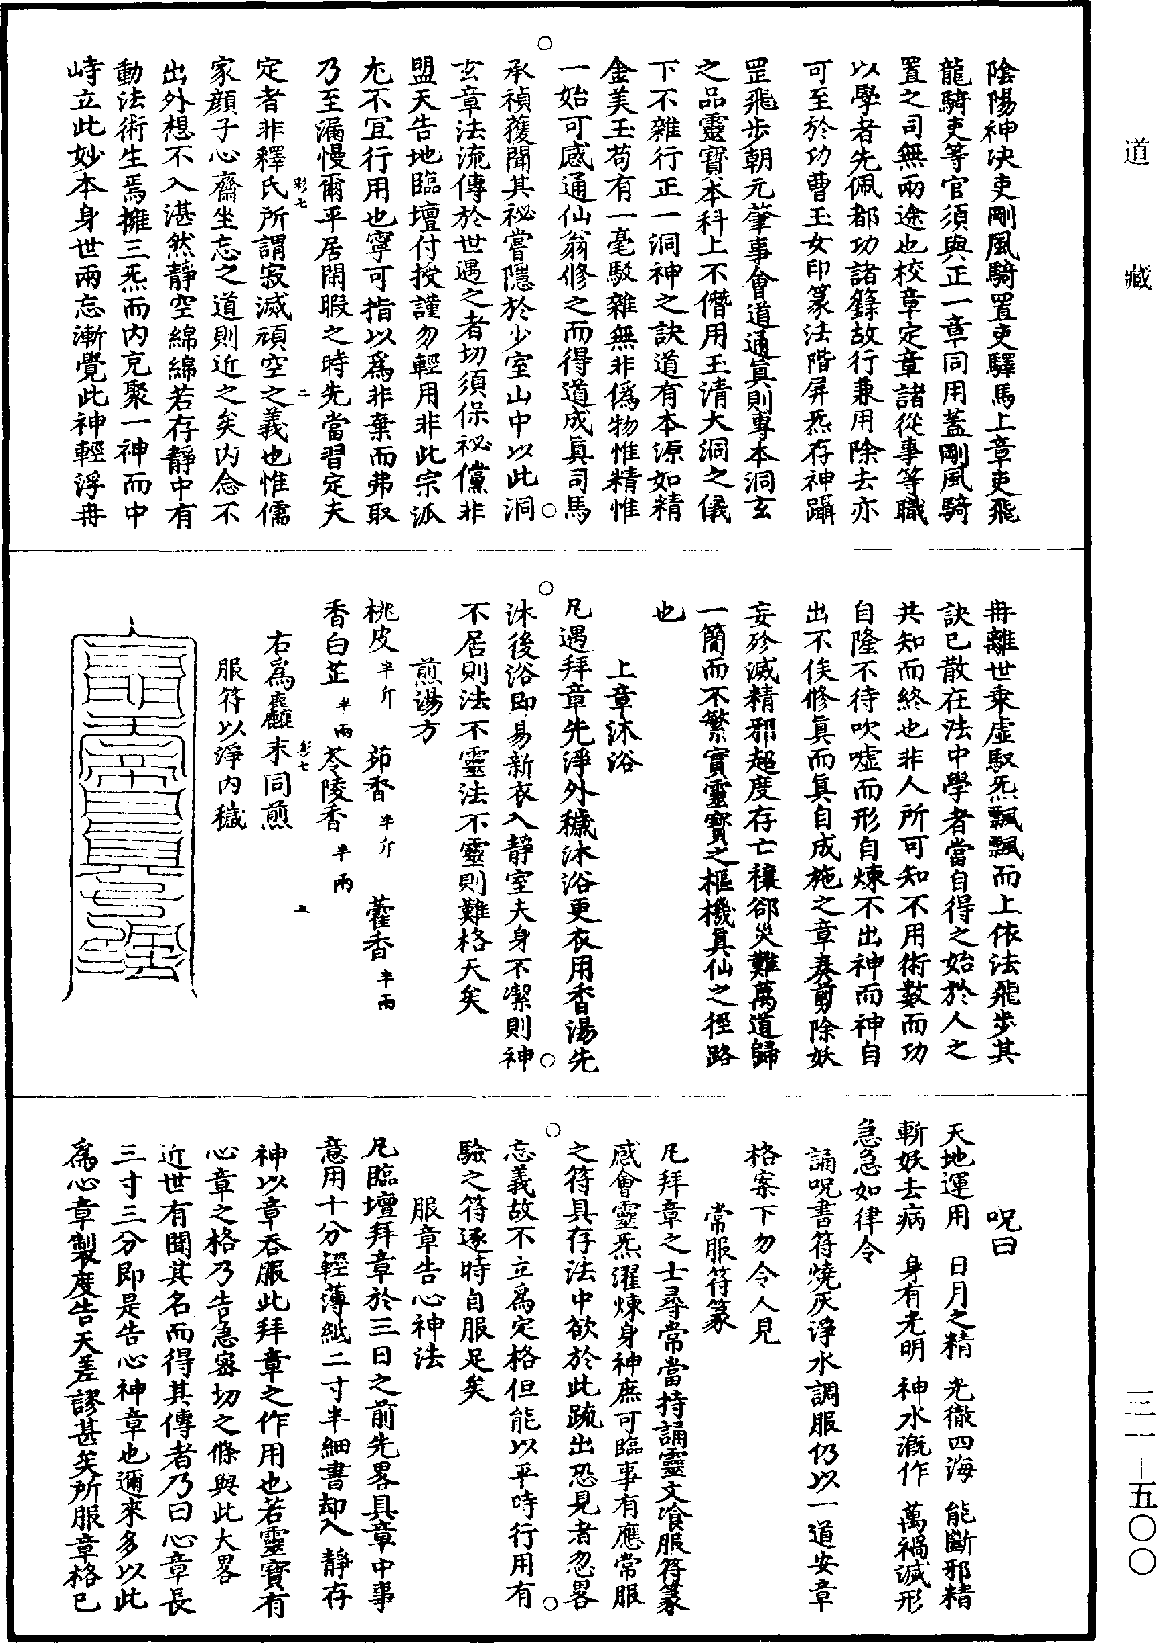 陰陽神決吏剛風騎置吏驛馬上章吏飛
龍騎吏等官須與正一章同用蓋剛風騎
置之司無兩途也校章定章諸從事等職
以學者先佩都功諸籙故行兼用除去亦
可至於功曹玉女印篆法階屏炁存神躡
罡飛步朝元肇事會道通眞則專本洞玄
之品靈寶本科上不僭用玉清大洞之儀
下不雜行正一洞神之訣道有本源如精
金美玉苟有一毫駁雜無非僞物惟精惟
一始可感通仙翁修之而得道成眞司馬
承禎獲開其祕嘗隱於少室山中以此洞
玄章法流傳於世遇之者切須保祕儻非
盟天告地臨壇付授謹勿輕用非此宗派
尤不宜行用也寧可指以爲非棄而弗取
乃至漏慢爾平居閑暇之時先當習定夫
定者非釋氏所謂寂滅頑空之義也惟儒
彩七 二
家顏子心齋坐忘之道則近之矣內念不
出外想不入湛然靜空綿綿若存靜中有
動法術生焉擁三炁而內充聚一神而中
峙立此妙本身世兩忘漸覺此神輕浮冉
冉離世乘虛馭炁飄飄而上依法飛步其
訣已散在法中學者當自得之始於人之
共知而終也非人所可知不用術數而功
自隆不待吹噓而形自煉不出神而神自
出不俟修眞而眞自成施之章奏剪除妖
妄殄滅精邪超度存亡禳郤災難萬道歸
一簡而不繁實靈寶之樞機眞仙之徑路
也
上章沐浴
凡遇拜章先淨外穢沐浴更衣用香湯先
沐後浴即易新衣入靜室夫身不潔則神
不居則法不靈法不靈則難格天矣
煎湯方
桃皮半斤 茆香半斤 藿香半兩
香白芷半兩 苓陵香半兩
彩七 三
右爲麤末同煎
服符以淨內穢
呪曰
天地運用 日月之精 光徹四海 能斷邪精
斬妖去病 身有光明 神水漑作 萬禍滅形
急急如律令
誦呪書符燒灰淨水調服仍以一道安章
格案下勿令人見
常服符篆
凡拜章之士尋常當持誦靈文飡服符篆
感會靈炁濯煉身神庶可臨事有應常服
之符具存法中欲於此疏出恐見者忽畧
忘義故不立爲定格但能以平時行用有
驗之符逐時自服足矣
服章告心神法
凡臨壇拜章於三日之前先畧具章中事
意用十分輕薄紙二寸半細書却入 靜存
神以章吞服此拜章之作用也若靈寶有
心章之格乃告急密切之條與此大畧
近世有聞其名而得其傳者乃曰心章長
三寸三分即是告心神章也邇來多以此
爲心章製度告天差謬甚矣所服章格已
道藏
三二一五〇〇